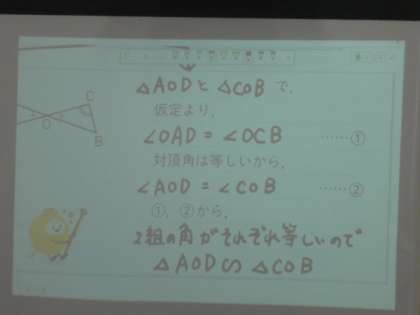 △AODと△COBで、
仮定より、
∠OAD = ∠OCB ……①
対頂角は等しいから、
∠AOD = ∠COB ……②
①、②から、
2組の角がそれぞれ等しいので
△AOD∽△COB
C
O
B